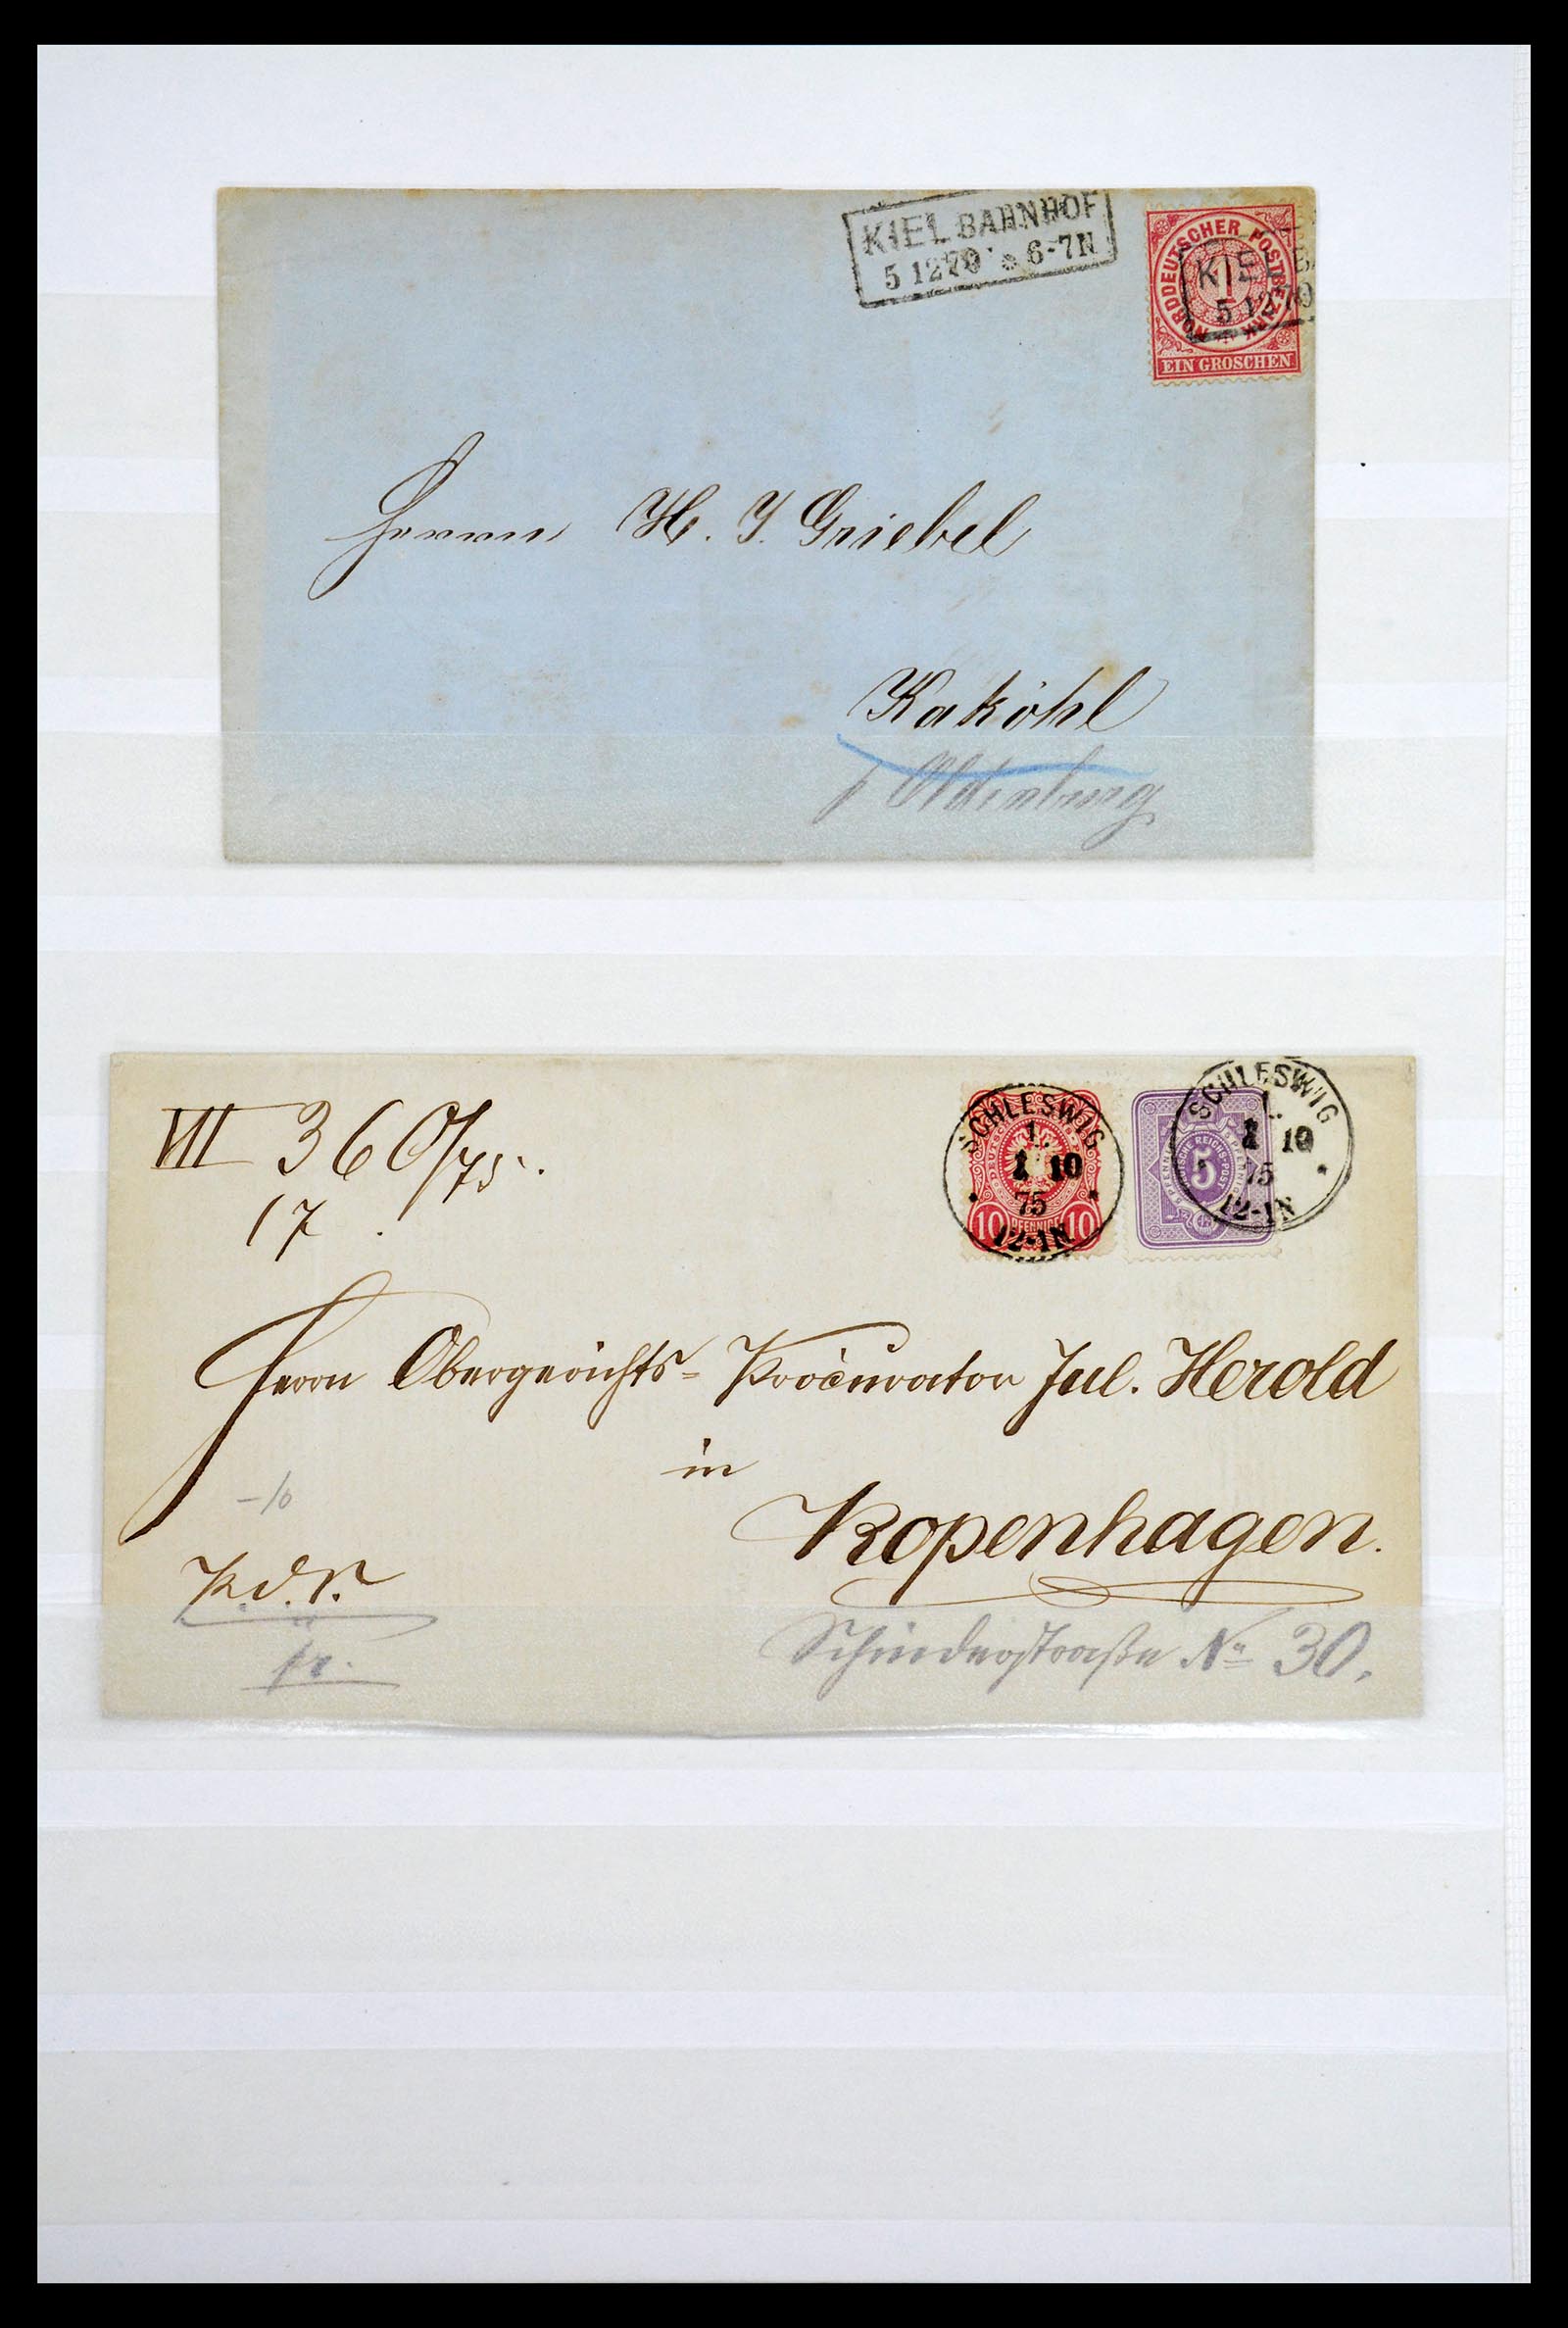 KIEL BAHNHOF
5 12 70 * 6-7N
NORDDEUTSCHER POSTBEZIRK
1
EIN GROSCHEN
KIEL BA
5 12 70
Herrn H. J. Griebel
Kaköhl
p Oldenburg
VII 360/75.
17.
SCHLESWIG
1 10
75
12-1N
10 PFENNIGE 10
SCHLESWIG
1 10
75
12-1N
DEUTSCHE REICHS-POST
5 PFENNIGE
5
Herrn Obergerichts=Procurator Jul. Herold
in
Kopenhagen.
-/6
K.d.S.
fr.
No 30.